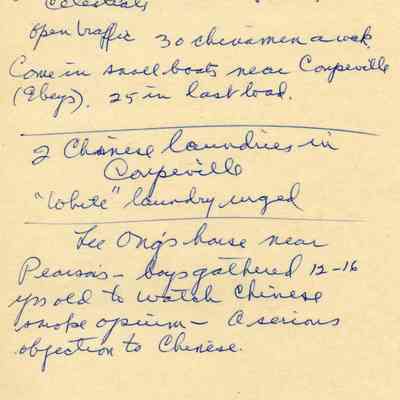 Celestials
open traffic 30 chinamen a week.
Come in small boats near Coupeville
(Ebeys). 25 in last load.
2 Chinese laundries in
Coupeville
"White" laundry urged
Lee Ong's house near
Pearson's - boys gathered 12-16
yrs old to watch Chinese
smoke opium - A serious
objection to Chinese.